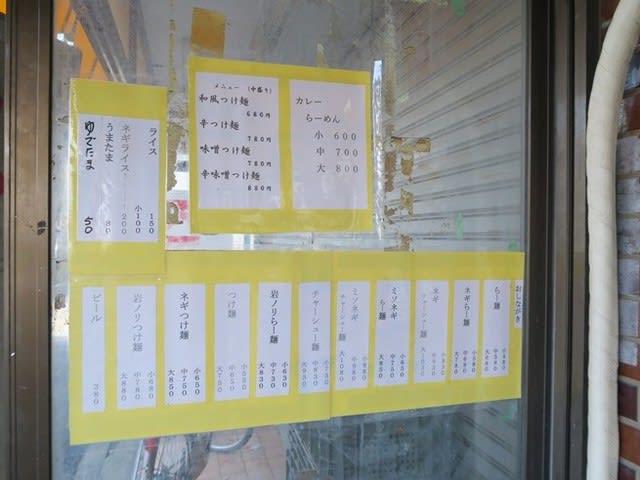 メニュー (中盛り)
和風つけ麺
680円
辛つけ麺
780円
味噌つけ麺
780円
辛味噌つけ麺
880円
カレー
らーめん
小 600
中 700
大 800
ライス
150
小100
ネギライス
200
うまたま
80
ゆでたま
50
おしながき
らー麺
ネギらー麺
大780
ネギ
チャーシュー麺
ミソネギ
らー麺
小650
中750
大850
ミソネギ
チャーシュー麺
大1080
チャーシュー麺
小730
中830
大930
岩ノリらー麺
小630
中730
大830
つけ麺
小550
中650
大750
ネギつけ麺
小650
中750
大850
岩ノリつけ麺
小680
中780
大880
ビール
380